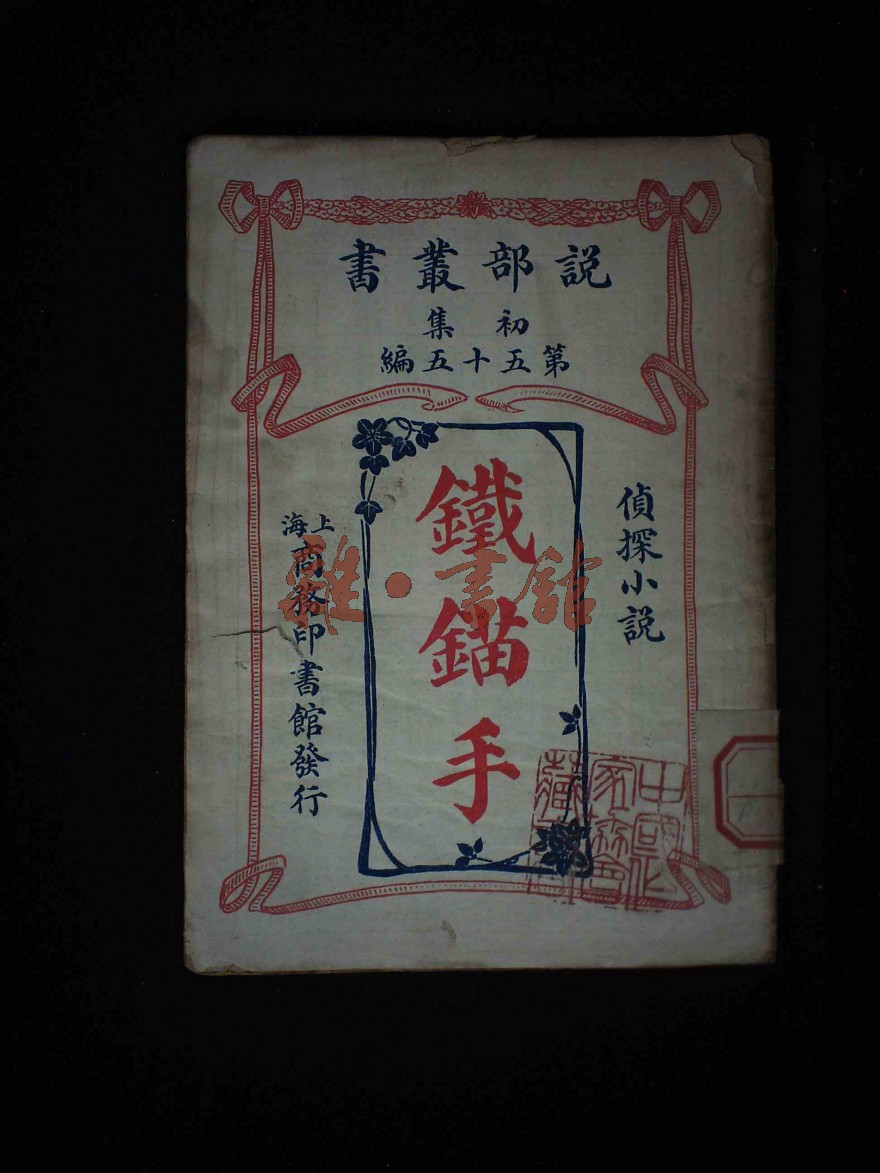 説部叢書
初集
第五十五編
偵探小説
鐵錨手
上海
商務印書館發行
雜·書館
中國作
家協會
藏書